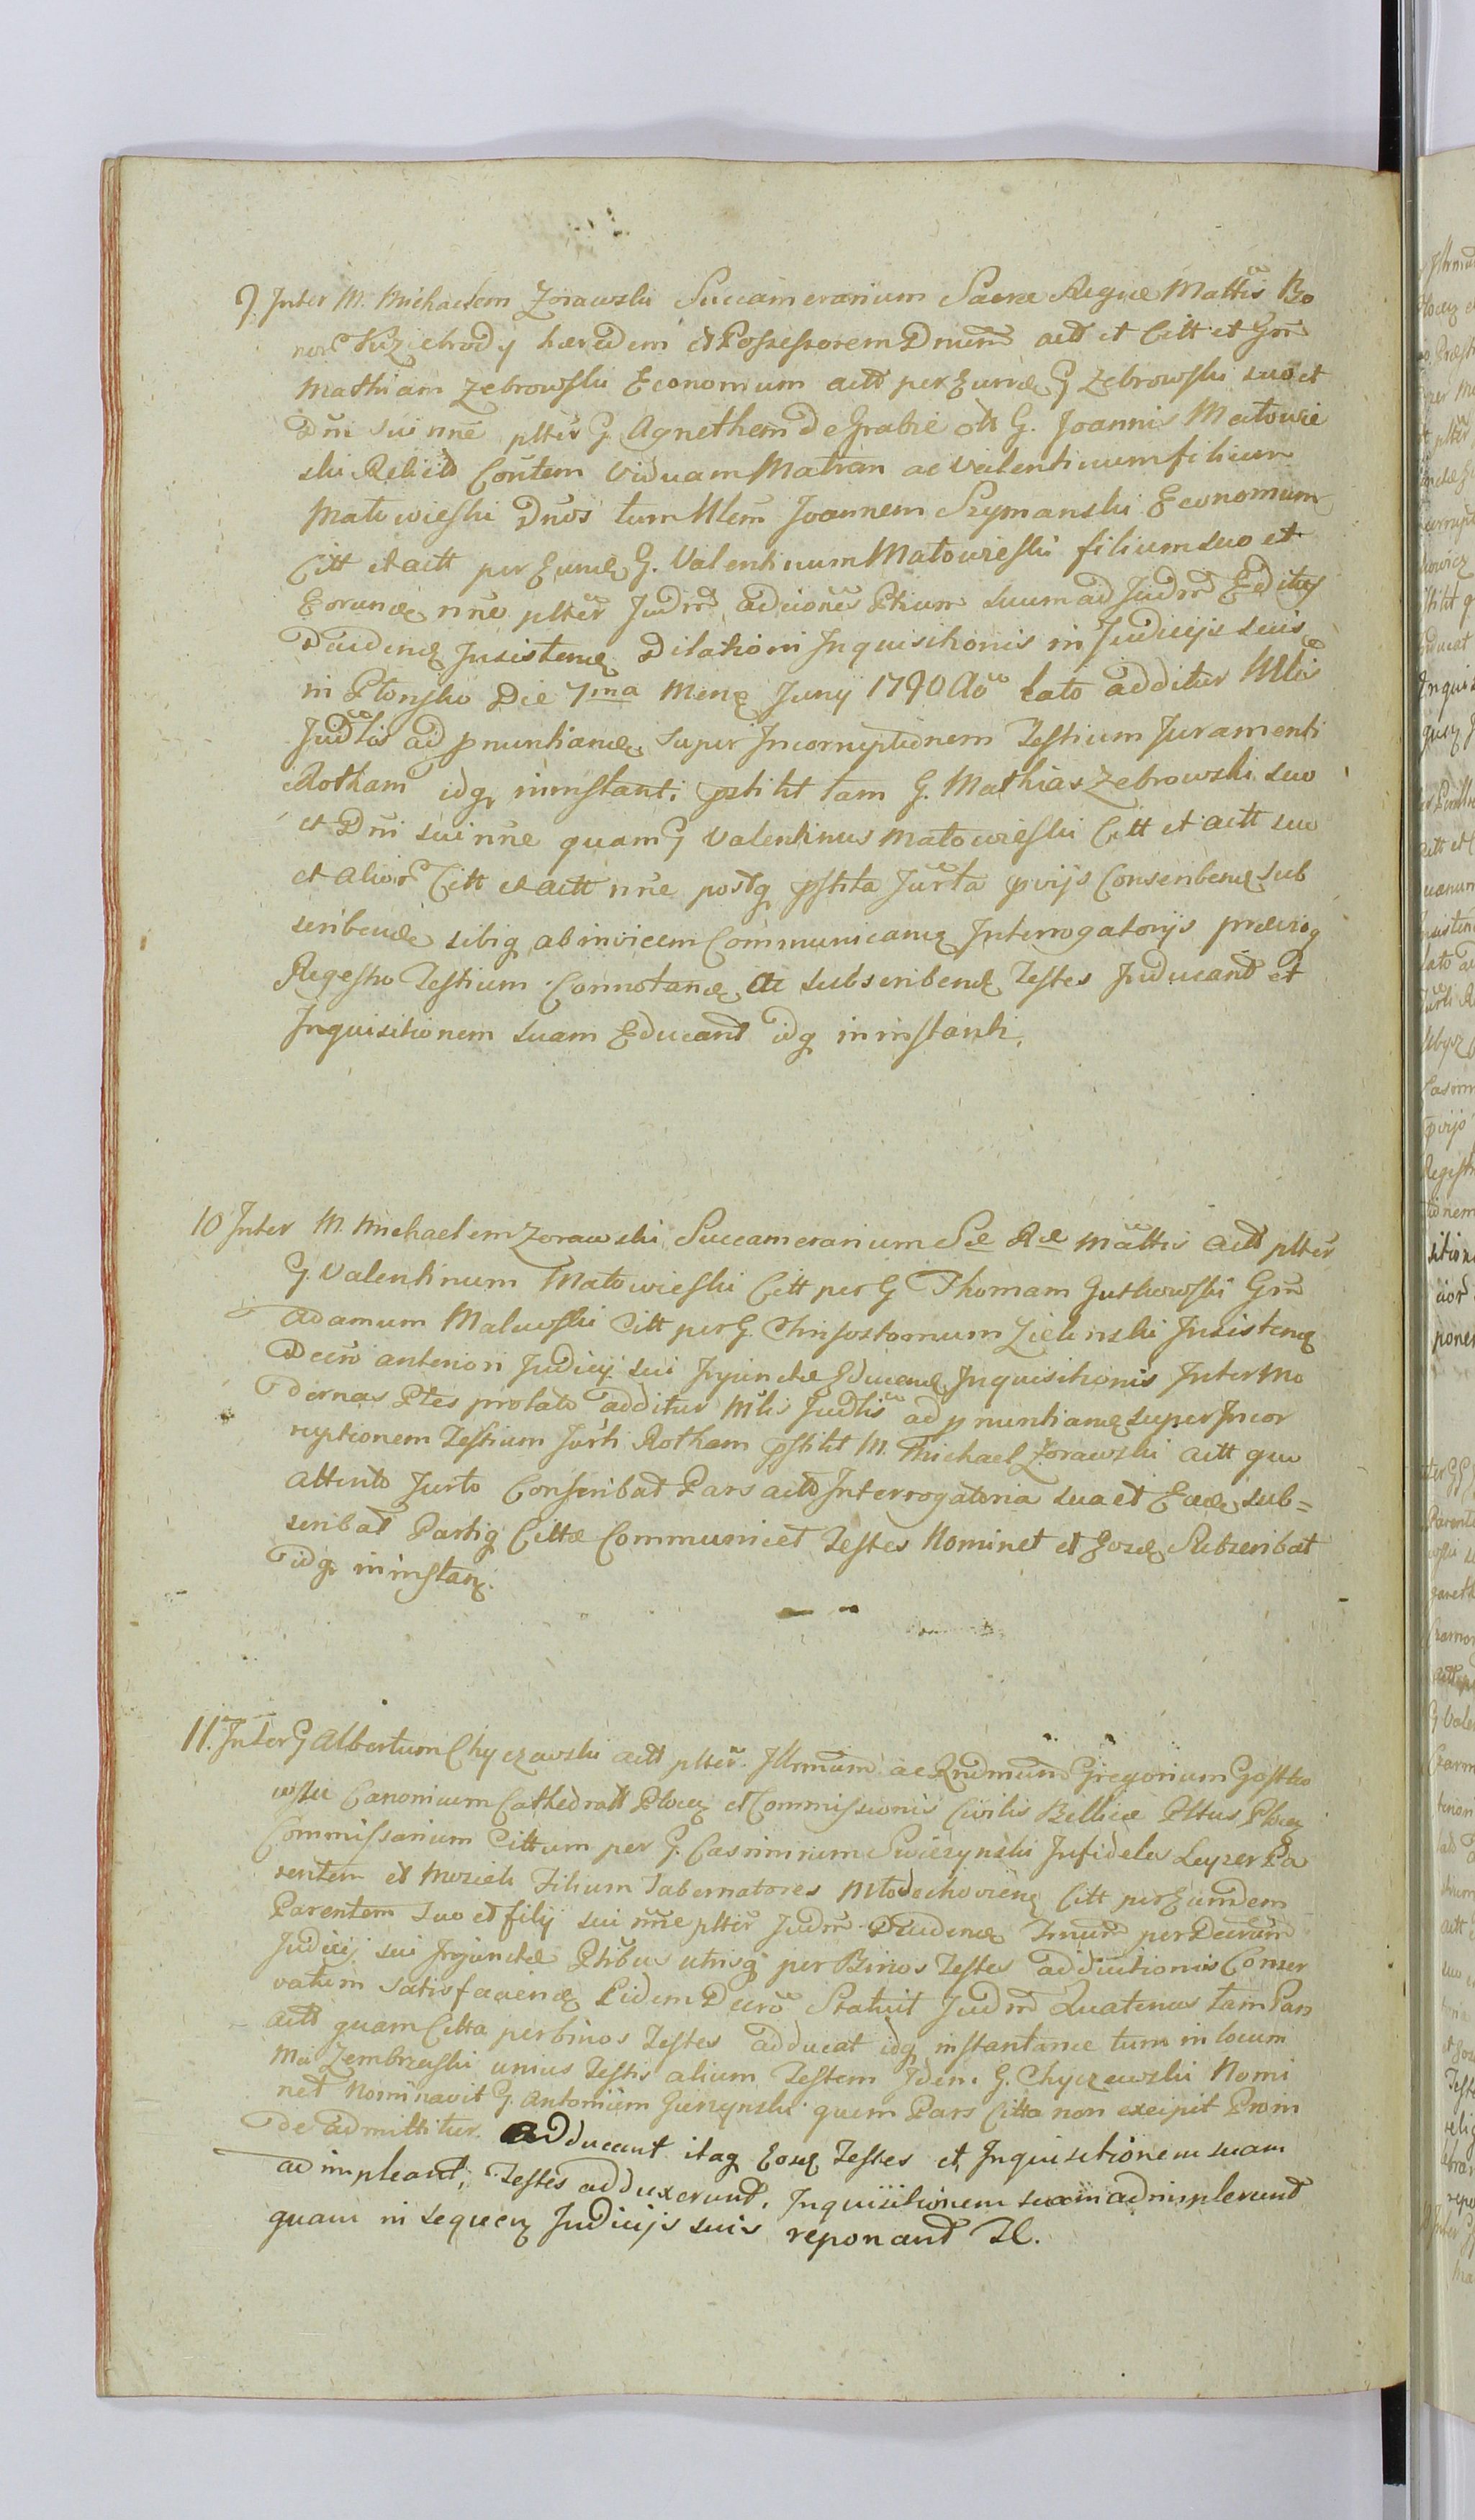 9. Inter M. Michaelem Zorawski Succamerarium Sacræ Regiæ Mattis Bo
nor Kuziebrody hæredem et Possessorem Dnum actt et Citt et Gm
Mathiam Zebrowski Economum actt per Eund G Zebrowski suo et
Dni sui nne plter G. Agnethem De Grabie olt G. Joannis Matowie
ski Relictt Contem Viduam Matram ac Valentinum filium
Matowieski Dnos tum Mlem Joannem Szymanski Economum
Citt et actt per Eund G. Valentinum Matowieski filium suo et
Eorund nne plter Judm adciones Ptium suum ad Judm Editus
Dividend Insistend Dilationi Inquisitionis in Judicijs suis
in Plonsko Die 7ma Mens Junij 1790 Ao lato additur Mlis
Judlis ad pnuntiand super Incorruptionem Testium Juramenti
Rotham idq ininstanti pstitit tam G. Mathias Zebrowski suo
et Dni sui nne quam G Valentinus Matowieski Citt et actt suo
et alior Citt et actt nne postq pstita Jurta pvijs Conscribend sub
scribend sibiq ab invicem Communicand Interrogatorijs prævioq
Regestro Testium Connotand ac subscribend Testes Inducant et
Inquisitionem suam Educant idq ininstanti.
10 Inter M. Michaelem Zorawski Succamerarium Sæ Ræ Mattis actt plter
G. Valentinum Matowieski Citt per G Thomam Gutkowski Gm
Adamum Malewski Citt per G. Chrisostomum Zielinski Insistend
Decro anteriori Judicij sui Injunctæ Educend Inquisitionis Inter Mo
dernas Ptes prolato additur Mlis Judlis ad pnuntiand super Incor
ruptionem Testium Jurti Rotham pstitit M. Michael Zorawski actt quo
attento Jurto Conscribat Pars actt Interrogatoria sua et Ead sub=
scribat Partiq Cittæ Communicet Testes Nominet et Eosd Subscribat
idq ininstan.
11. Inter G Albertum Chyczewski actt plter. Illrmum ac Rndmum Gregorium Gostko
wski Canonicum Cathedralt Plocen et Commissionis Civilis Bellicæ Plttus Plocen
Commissarium Cittum per G. Casimirum Swiezynski Infideles Leyzer Pa
rentem et Moziek Filium Tabernatores Mlodochovien Citt per Eundem
Parentem suo et filij sui nne plter Judm Dividend Tmum per Decrum
Judicij sui Injunctæ Ptibus utrisq per Binos Testes addictionis Conser
vatum satisfaciend Eidem Decro Statuit Judm Quatenus tam Pars
actt quam Citta per binos Testes adducat idq instantanee tum in locum
Mci Zembrzuski unius Testis alium Testem Idem G. Chyczewski Nomi
net Nominavit G. Antonium Gierzynski quem Pars Citta non excipit Proin
de admittitur. Adducant itaq Eosd Testes et Inquisitionem suam
adimpleant; Testes adduxerunt, Inquisitionem suam adimplerunt
quam in sequen Judicijs suis reponant Tl.